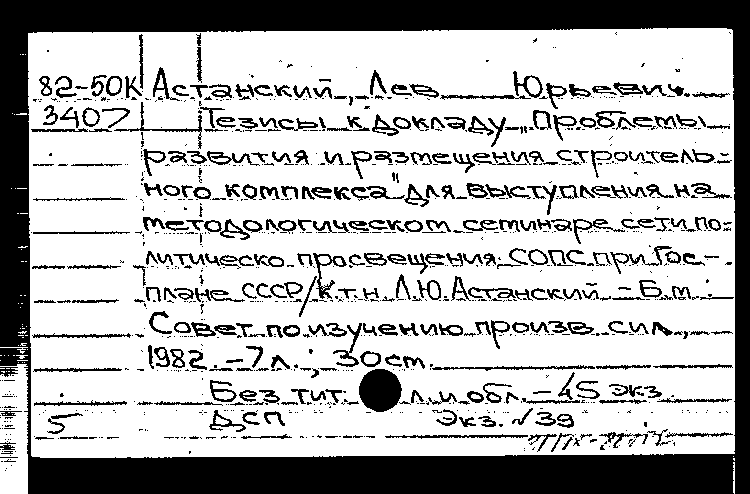 82-50К Астанский, Лев Юрьевич.
3407 Тезисы к докладу „Проблемы
развития и размещения строитель-
ного комплекса" для выступления на
методологическом семинаре сети по-
литическо просвещения СОПС при Гос-
плане СССР/к.т.н. Л.Ю. Астанский - Б.м.:
Совет по изучению произв. сил,
1982. - 7 л.; 30 cm.
Без тит. л. и обл. - 45 экз.
5 ДСП Экз. №39